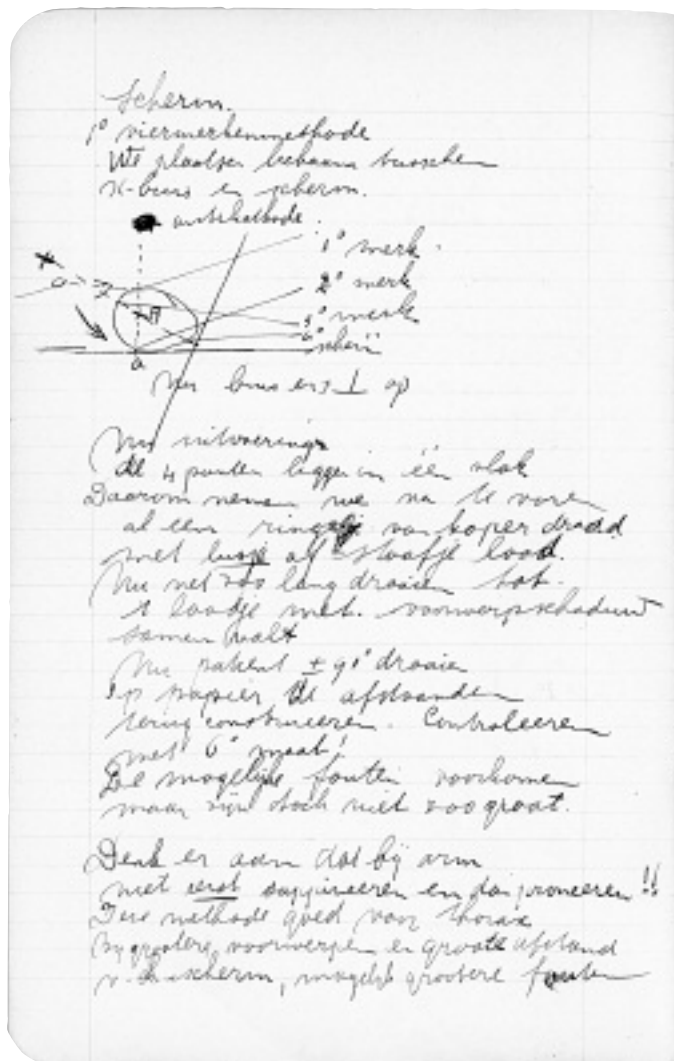 Scherm.
1° viermerkenmethode
We plaatsen lichaam tusschen
X-buis en scherm.
antikathode.
1° merk.
2° merk
3° merk
6°
a
Nu buis erop ⊥ op
Nu uitvoering
de 4 punten liggen in één vlak
Daarom nemen we na te voren
al een ringetje van koper draad
met lusje of staafje lood.
Nu net zoo lang draaien tot
't loodje met voorwerpschaduw
samen valt
Nu patient ± 90° draaien
Op papier de afstanden
terug construeeren. Controleeren
met 6° maat!
De mogelijke fouten voorkomen
maar zijn toch niet zoo groot.
Denk er aan dat bij arm
niet eerst suppineeren en dan proneeren!!
Deze methode goed voor thorax
Bij grootere voorwerpen en groote afstand
v. d. scherm, mogelijk grootere fouten